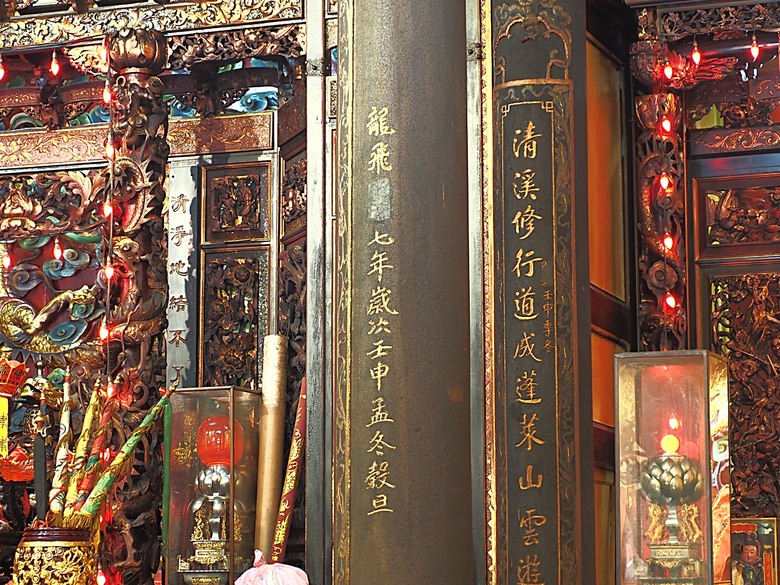 清溪修行道成蓬萊山雲遊
壬申季冬
龍飛 七年歲次壬申孟冬穀旦
地結不